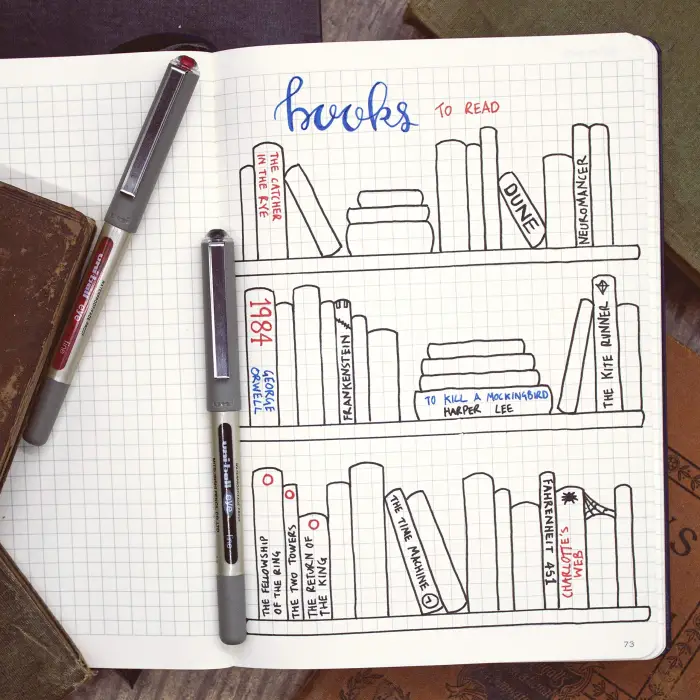 books TO READ
THE CATCHER
IN THE RYE
DUNE
NEUROMANCER
1984
GEORGE
ORWELL
FRANKENSTEIN
TO KILL A MOCKINGBIRD
HARPER LEE
THE KITE RUNNER
THE FELLOWSHIP
OF THE RING
THE TWO TOWERS
THE RETURN OF
THE KING
THE TIME MACHINE
FAHRENHEIT 451
CHARLOTTE'S
WEB
73
uni-ball eye
fine
uni-ball eye
fine